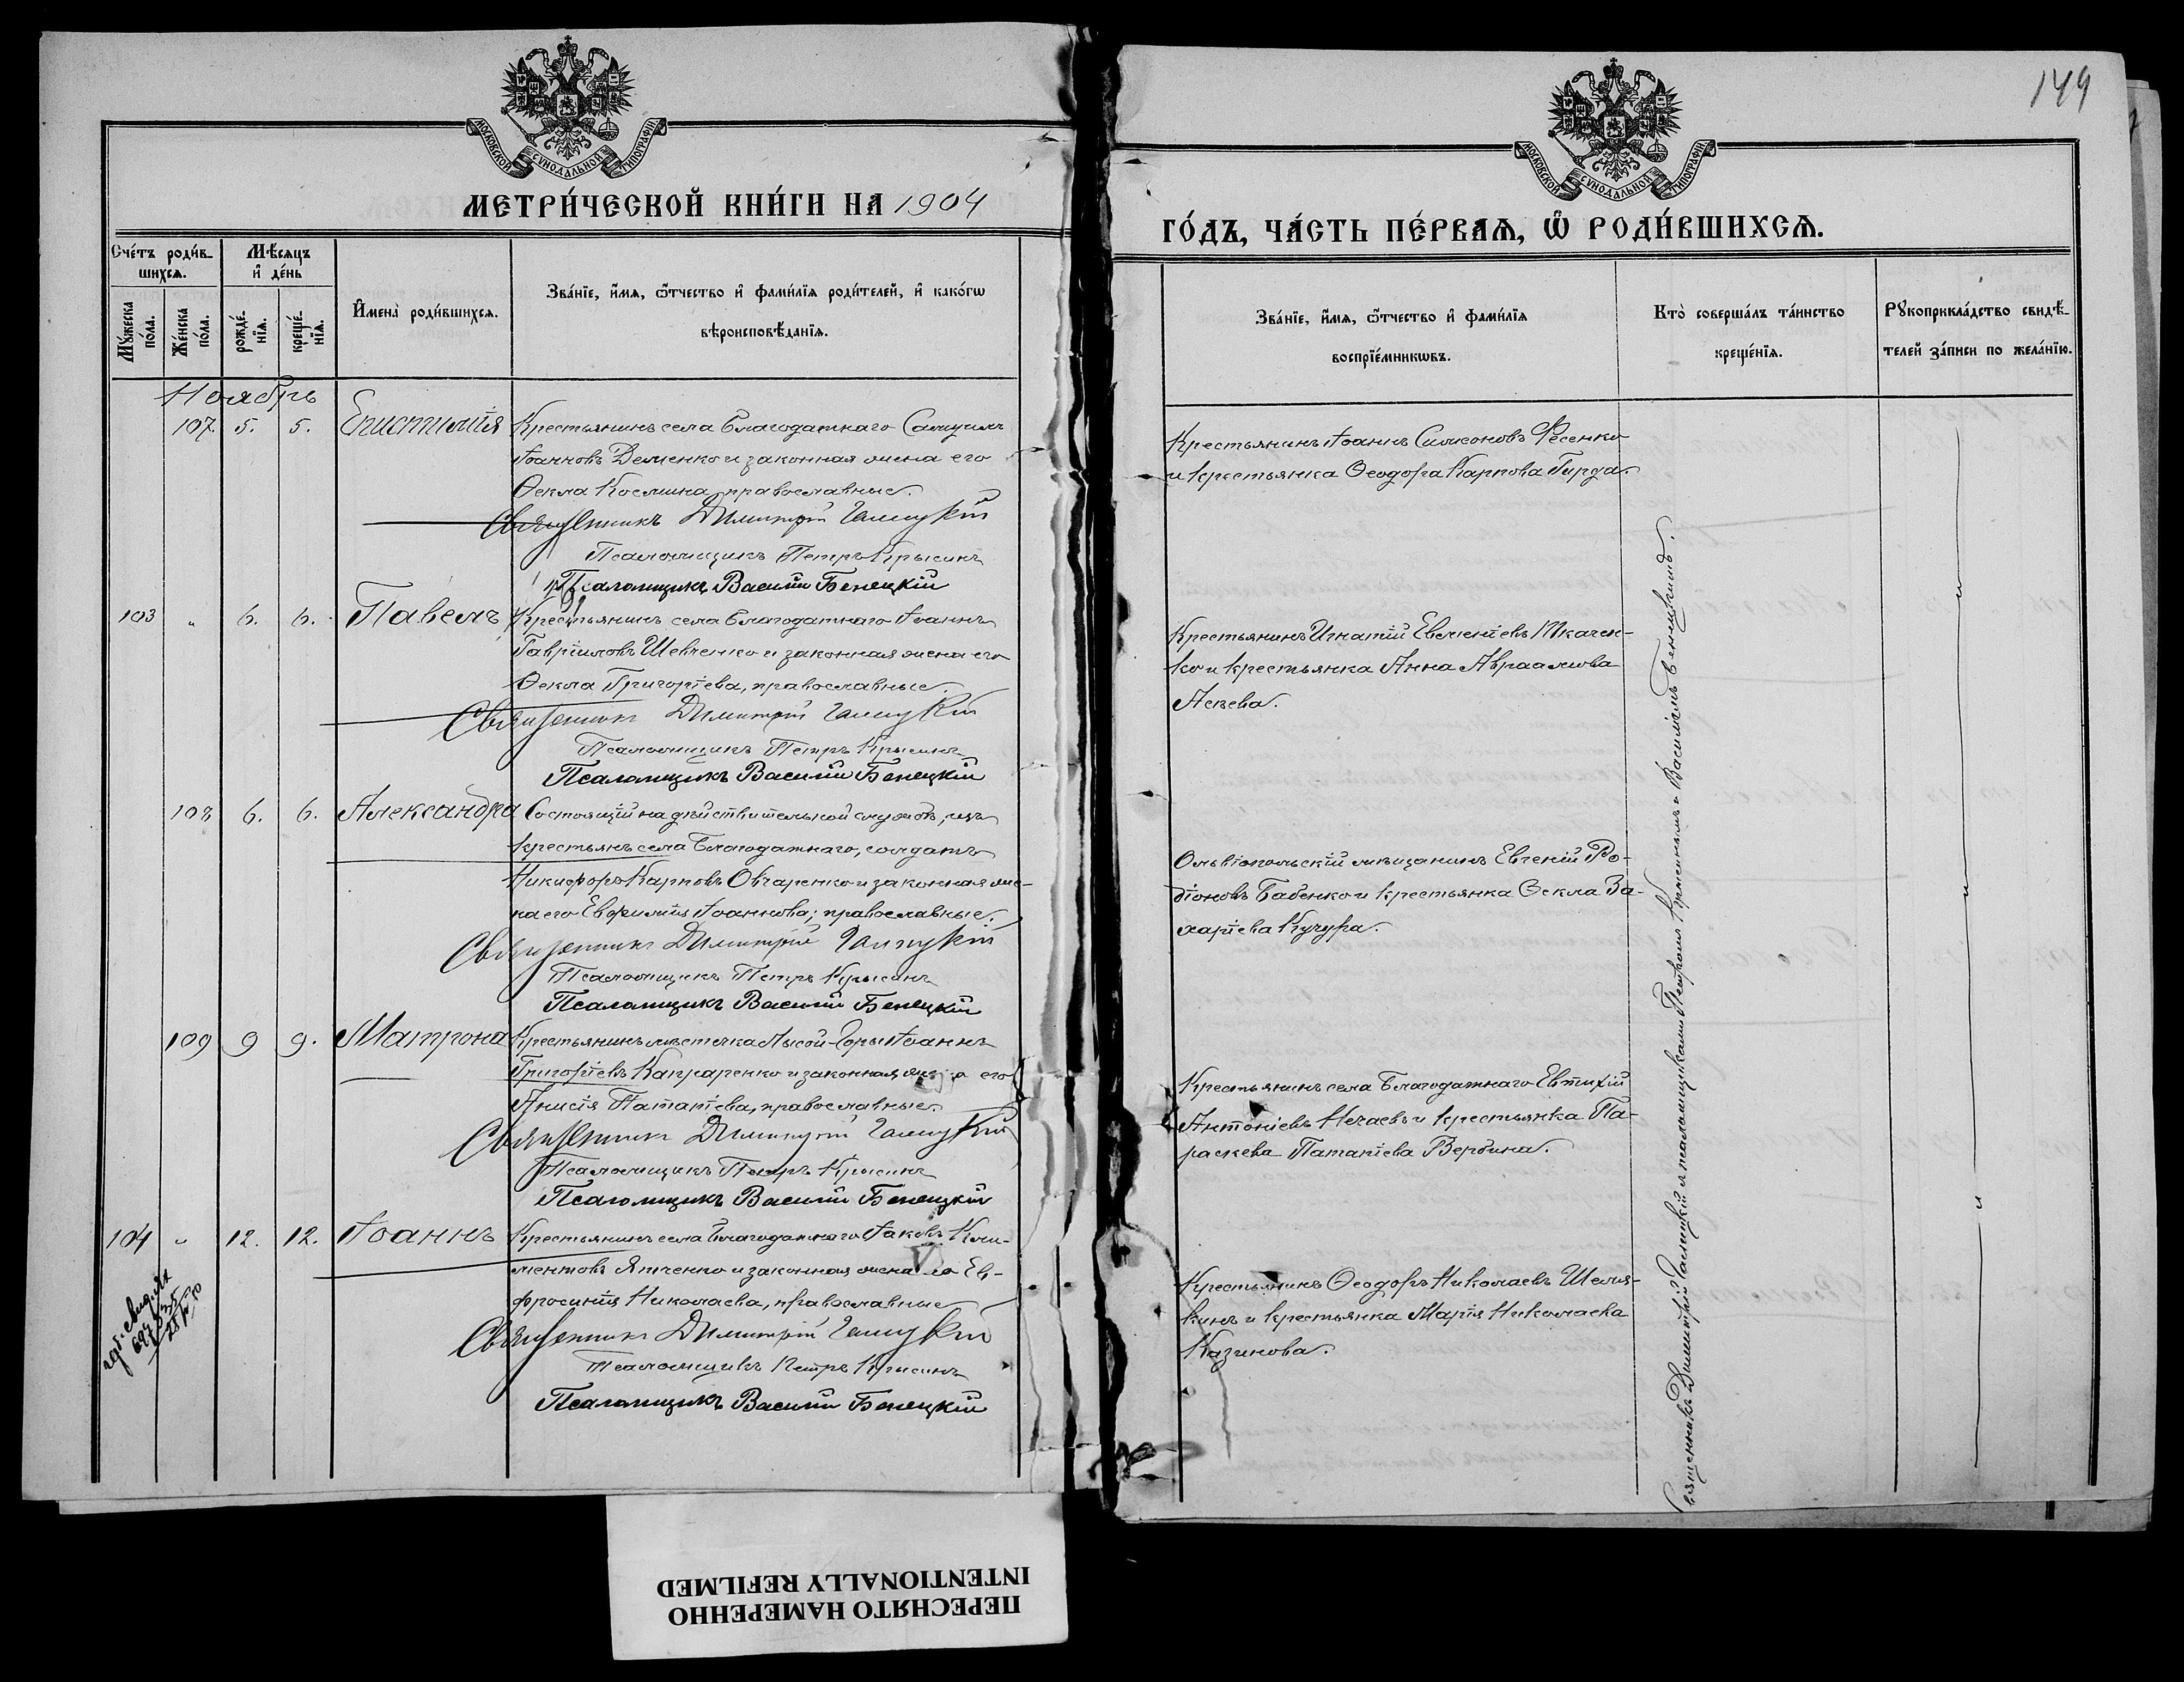 149
МОСКОВСКОЙ СѴНОДАЛЬНОЙ ТИПОГРАФІИ
МЕТРИ́ЧЕСКОЙ КНИ́ГИ НА 1904
Сче́тъ роди́в-
шихсѧ.
Мꙋ́жеска
по́ла.
Же́нска
по́ла.
Мѣ́сяцъ
и҆ де́нь
рожде́-
нїѧ.
креще́-
нїѧ.
И҆мена̀ роди́вшихсѧ.
Зва́нїе, и҆́мѧ, ѻ҆́тчество и҆ фами́лїѧ роди́телей, и҆ како́гѡ
вѣроисповѣ́данїѧ.
Ноябрь
107. 5. 5. Епистимія
Крестьянинъ села Благодатнаго Самуилъ
Іоанновъ Деменко и законная жена его
Ѳекла Космина, православные.
Священникъ Димитрій Галицкій
Псаломщикъ Петръ Крысинъ
Псаломщикъ Василій Бенецкій
103 " 6. 6. Павелъ
Крестьянинъ села Благодатнаго Іоаннъ
Гавріиловъ Шевченко и законная жена его
Ѳекла Григоріева, православные.
Священникъ Димитрій Галицкій
Псаломщикъ Петръ Крысинъ
Псаломщикъ Василій Бенецкій
108 6. 6. Александра
Состоящій на дѣйствительной службѣ, изъ
крестьянъ села Благодатнаго, солдатъ
Никифоръ Карповъ Овчаренко и законная же-
на его Евфимія Іоаннова; православные.
Священникъ Димитрій Галицкій
Псаломщикъ Петръ Крысинъ
Псаломщикъ Василій Бенецкій
109 9 9. Матрона
Крестьянинъ мѣстечка Лысой-Горы Іоаннъ
Григоріевъ Капраренко и законная жена его
Анисія Патапіева, православные.
Священникъ Димитрій Галицкій
Псаломщикъ Петръ Крысинъ
Псаломщикъ Василій Бенецкій
104 " 12. 12. Іоаннъ
Крестьянинъ села Благодатнаго Іаковъ Кли-
ментовъ Ятченко и законная жена его Ев-
фросинія Николаева, православные
Священникъ Димитрій Галицкій
Псаломщикъ Петръ Крысинъ
Псаломщикъ Василій Бенецкій
МОСКОВСКОЙ СѴНОДАЛЬНОЙ ТИПОГРАФІИ
ГО́ДЪ, ЧА́СТЬ ПЕ́РВАѦ, Ѽ РОДИ́ВШИХСѦ.
Зва́нїе, и҆́мѧ, ѻ҆́тчество и҆ фами́лїѧ
воспрїе́мникѡвъ.
Кто̀ соверша́лъ та́инство
креще́нїѧ.
Рꙋкоприкла́дство свидѣ́-
телей за́писи по жела́нїю.
Крестьянинъ Іоаннъ Симеоновъ Фесенко
и крестьянка Ѳеодора Карпова Гирда.
Крестьянинъ Игнатій Евменіевъ Ткачен-
ко и крестьянка Анна Авраамова
Асѣева.
Ольвіопольскій мѣщанинъ Евгеній Ро-
діоновъ Бабенко и крестьянка Ѳекла За-
харіева Кучура.
Крестьянинъ села Благодатнаго Евтихій
Антоніевъ Нечаевъ и крестьянка Па-
раскева Патапіева Вербина.
Крестьянинъ Ѳеодоръ Николаевъ Шеля-
кинъ и крестьянка Марія Николаева
Казинова.
Священникъ Димитрій Галицкій и псаломщиками Петромъ Крысинымъ и Василіемъ Бенецкимъ.
ПЕРЕСНЯТО НАМЕРЕННО
INTENTIONALLY REFILMED